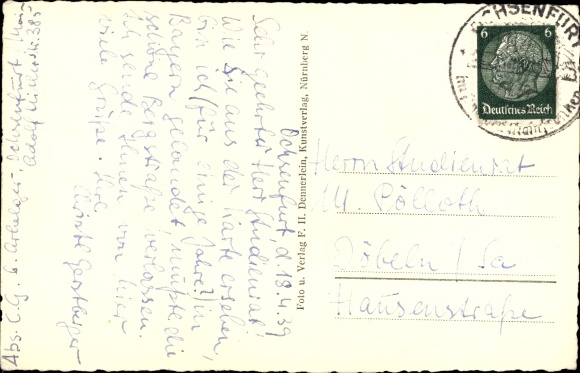 Ochsenfurt, d 18.4.39
Sehr geehrter Herr Studienrat!
Wie Sie aus der Karte ersehen,
bin ich (für einige Jahre?) in
Bayern gelandet, mußte die
schöne Bergstraße verlassen.
Ich sende Ihnen von hier
viele Grüße. Ihre
Gerstberger
Abs. C. G. b. Ochsenfurt, Main
Adolf Hitlerstr. 385
Foto u. Verlag F. H. Dennerlein, Kunstverlag, Nürnberg N
OCHSENFURT
6 6
Deutsches Reich
Herrn Studienrat
M. Pölloth
Döbeln / Sa
Hausenstraße